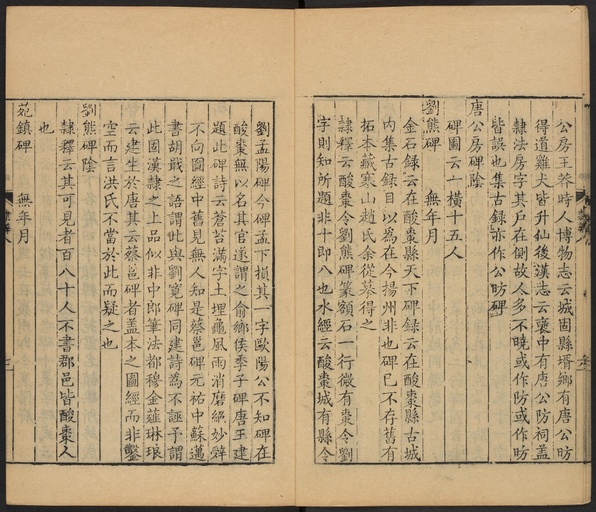 公房王莽時人博物志云城固縣壻鄉有唐公昉
得道雞犬皆升仙後漢志云褒中有唐公防祠蓋
隸法房字其戶在側故人多不曉或作防或作昉
皆誤也集古録亦作公昉碑
唐公房碑陰
碑圖云一橫十五人
劉熊碑 無年月
金石録云在酸棗縣天下碑録云在酸棗縣古城
内集古録目以為在今揚州非也碑已不存舊有
拓本藏寒山趙氏余從摹得之
隸釋云酸棗令劉熊碑篆額石一行微有棗令劉
字則知所題非十即八也水經云酸棗城有縣令
劉孟陽碑今碑孟下損其一字歐陽公不知碑在
酸棗無以名其官遂謂之俞鄉侯季子碑唐王建
題此碑詩云蒼苔滿字土埋龜風雨消磨絕妙辤
不向圖經中舊見無人知是蔡邕碑元祐中蘇邁
書胡戢之語謂此與劉寬碑同建詩為不誣予謂
此固漢隸之上品似非中郎筆法都穆金薤琳琅
云建生於唐其云蔡邕碑者盖本之圖經而非鑿
空而言洪氏不當於此而疑之也
劉熊碑陰
隸釋云其可見者百八十人不書郡邑皆酸棗人
也
苑鎮碑 無年月